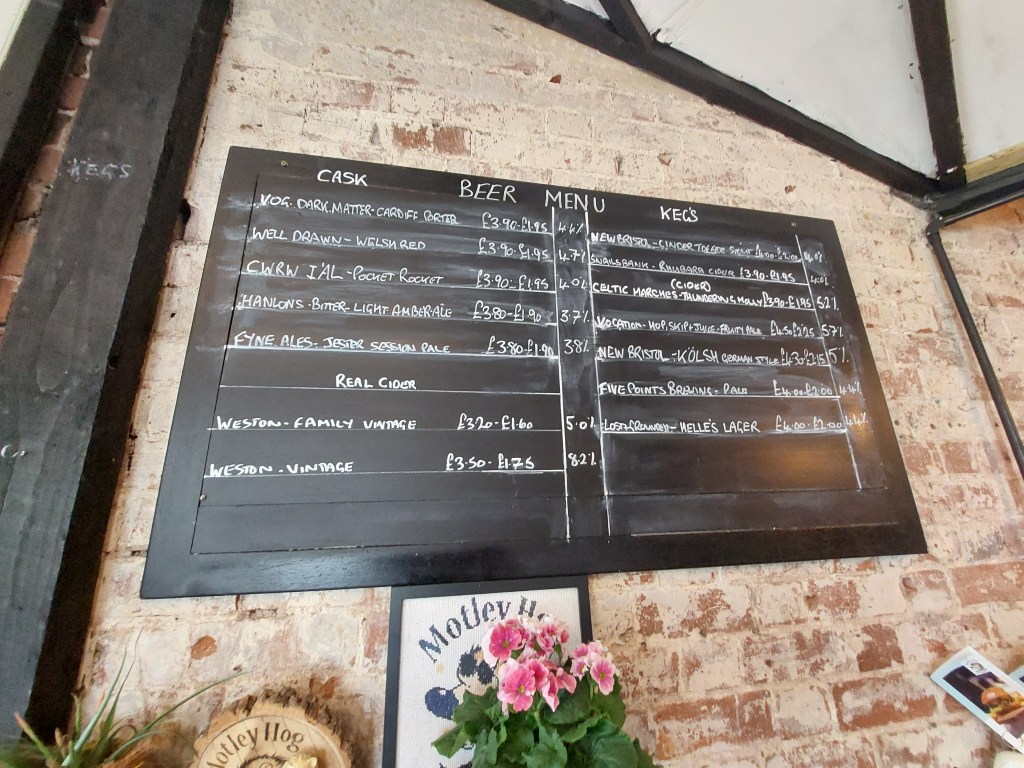 KEGS
BEER MENU
CASK
VOG. DARK MATTER - CARDIFF PORTER £3.90 - £1.95 4.4%
WELL DRAWN - WELSH RED £3.90 - £1.95 4.7%
CWRW IÂL - POCKET ROCKET £3.90 - £1.95 4.0%
HANLONS - BITTER - LIGHT AMBER ALE £3.80 - £1.90 3.7%
FYNE ALES - JESTER SESSION PALE £3.80 - £1.90 3.8%
REAL CIDER
WESTON - FAMILY VINTAGE £3.20 - £1.60 5.0%
WESTON - VINTAGE £3.50 - £1.75 8.2%
KEG'S
NEW BRISTOL - CINDER TOFFEE STOUT £4.00 - £2.00 4.0%
SNAILSBANK - RHUBARB CIDER £3.90 - £1.95 4.0%
(CIDER)
CELTIC MARCHES - THUNDERING MOLLY £3.90 - £1.95 5.2%
VOCATION - HOP, SKIP & JUICE - FRUITY PALE £4.50 £2.25 5.7%
NEW BRISTOL - KÖLSH GERMAN STYLE £4.30 £2.15 5%
FIVE POINTS BREWING - PALE £4.00 - £2.00 4.4%
LOST & GROUNDED - HELLE'S LAGER £4.00 - £2.00 4.4%
Motley Hog
Motley Hog